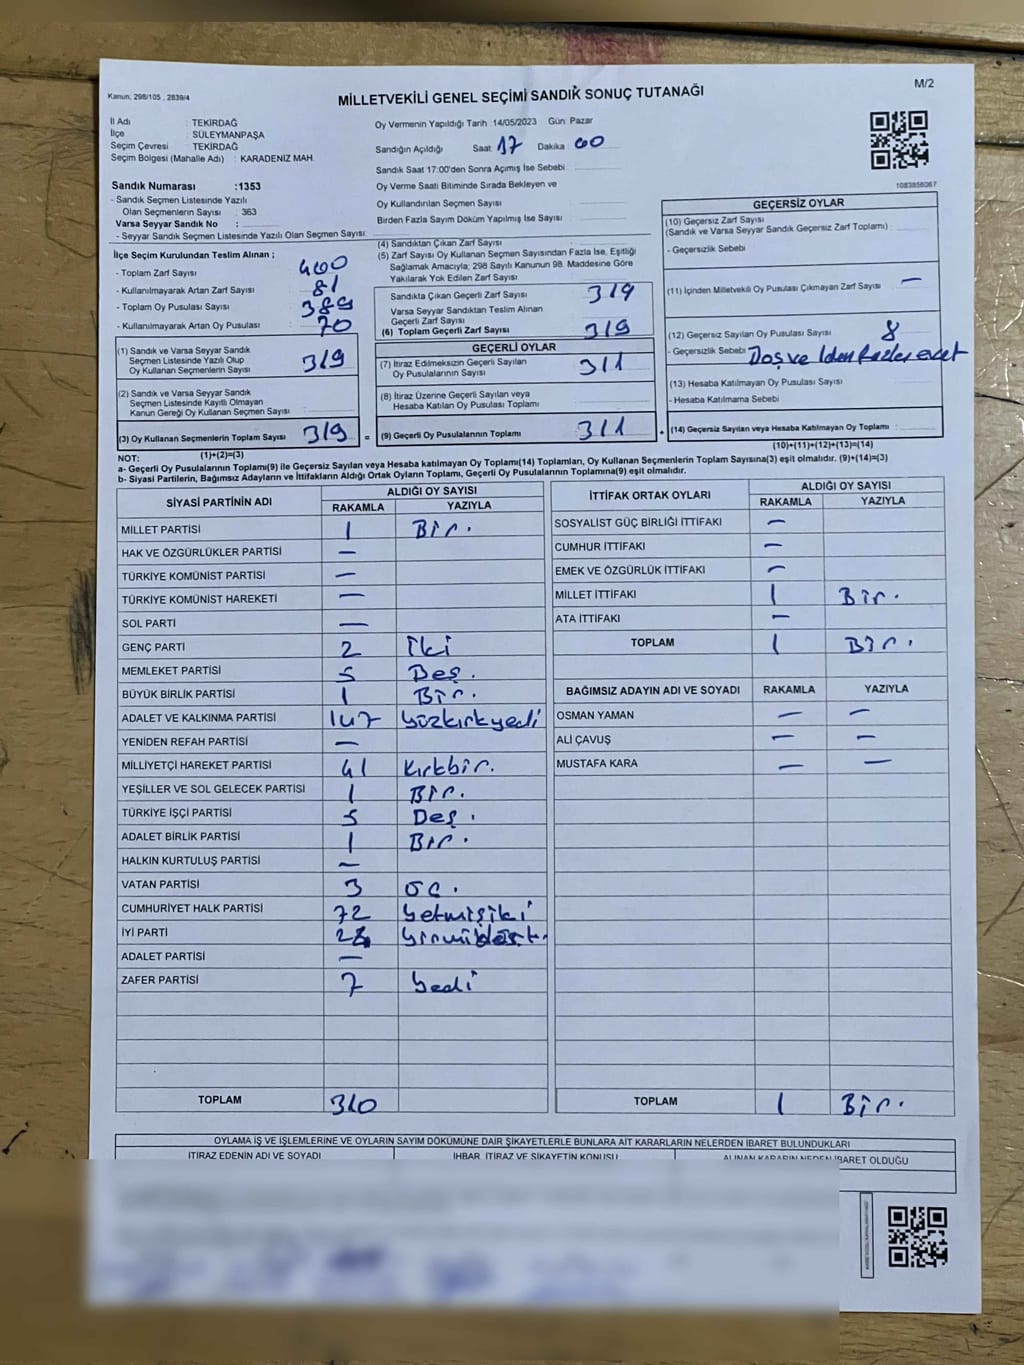 M/2
Kanun: 298/105 , 2839/4
MİLLETVEKİLİ GENEL SEÇİMİ SANDIK SONUÇ TUTANAĞI
İl Adı : TEKİRDAĞ
İlçe : SÜLEYMANPAŞA
Seçim Çevresi : TEKİRDAĞ
Seçim Bölgesi (Mahalle Adı) : KARADENİZ MAH.
Sandık Numarası :1353
- Sandık Seçmen Listesinde Yazılı
Olan Seçmenlerin Sayısı : 363
Varsa Seyyar Sandık No :
- Seyyar Sandık Seçmen Listesinde Yazılı Olan Seçmen Sayısı:
Oy Vermenin Yapıldığı Tarih :14/05/2023 Gün: Pazar
Sandığın Açıldığı Saat 17 Dakika 00
Sandık Saat 17:00'den Sonra Açımış İse Sebebi
Oy Verme Saati Bitiminde Sırada Bekleyen ve
Oy Kullandırılan Seçmen Sayısı
Birden Fazla Sayım Döküm Yapılmış İse Sayısı
1083856067
İlçe Seçim Kurulundan Teslim Alınan ;
- Toplam Zarf Sayısı 400
- Kullanılmayarak Artan Zarf Sayısı 81
- Toplam Oy Pusulası Sayısı 389
- Kullanılmayarak Artan Oy Pusulası 70
(1) Sandık ve Varsa Seyyar Sandık
Seçmen Listesinde Yazılı Olup
Oy Kullanan Seçmenlerin Sayısı 319
(2) Sandık ve Varsa Seyyar Sandık
Seçmen Listesinde Kayıtlı Olmayan
Kanun Gereği Oy Kullanan Seçmen Sayısı
(3) Oy Kullanan Seçmenlerin Toplam Sayısı 319 =
(1)+(2)=(3)
(4) Sandıktan Çıkan Zarf Sayısı
(5) Zarf Sayısı Oy Kullanan Seçmen Sayısından Fazla İse, Eşitliği
Sağlamak Amacıyla; 298 Sayılı Kanunun 98. Maddesine Göre
Yakılarak Yok Edilen Zarf Sayısı
Sandıkta Çıkan Geçerli Zarf Sayısı 319
Varsa Seyyar Sandıktan Teslim Alınan
Geçerli Zarf Sayısı
(6) Toplam Geçerli Zarf Sayısı 319
GEÇERLİ OYLAR
(7) İtiraz Edilmeksizin Geçerli Sayılan
Oy Pusulalarının Sayısı 311
(8) İtiraz Üzerine Geçerli Sayılan veya
Hesaba Katılan Oy Pusulası Toplamı
(9) Geçerli Oy Pusulalarının Toplamı 311 +
GEÇERSİZ OYLAR
(10) Geçersiz Zarf Sayısı
(Sandık ve Varsa Seyyar Sandık Geçersiz Zarf Toplamı) :
- Geçersizlik Sebebi
(11) İçinden Milletvekili Oy Pusulası Çıkmayan Zarf Sayısı —
(12) Geçersiz Sayılan Oy Pusulası Sayısı 8
- Geçersizlik Sebebi
(13) Hesaba Katılmayan Oy Pusulası Sayısı
- Hesaba Katılmama Sebebi
(14) Geçersiz Sayılan veya Hesaba Katılmayan Oy Toplamı :
(10)+(11)+(12)+(13)=(14)
NOT:
a- Geçerli Oy Pusulalarının Toplamı(9) ile Geçersiz Sayılan veya Hesaba katılmayan Oy Toplamı(14) Toplamları, Oy Kullanan Seçmenlerin Toplam Sayısına(3) eşit olmalıdır. (9)+(14)=(3)
b- Siyasi Partilerin, Bağımsız Adayların ve İttifakların Aldığı Oyların Toplamı, Geçerli Oy Pusulalarının Toplamına(9) eşit olmalıdır.
SİYASİ PARTİNİN ADI ALDIĞI OY SAYISI
RAKAMLA YAZIYLA
MİLLET PARTİSİ 1 Bir.
HAK VE ÖZGÜRLÜKLER PARTİSİ —
TÜRKİYE KOMÜNİST PARTİSİ —
TÜRKİYE KOMÜNİST HAREKETİ —
SOL PARTİ —
GENÇ PARTİ 2 İki
MEMLEKET PARTİSİ 5 Beş.
BÜYÜK BİRLİK PARTİSİ 1 Bir.
ADALET VE KALKINMA PARTİSİ 147 Yüzkırkyedi
YENİDEN REFAH PARTİSİ —
MİLLİYETÇİ HAREKET PARTİSİ 41 Kırkbir.
YEŞİLLER VE SOL GELECEK PARTİSİ 1 Bir.
TÜRKİYE İŞÇİ PARTİSİ 5 Beş.
ADALET BİRLİK PARTİSİ 1 Bir.
HALKIN KURTULUŞ PARTİSİ —
VATAN PARTİSİ 3 Üç.
CUMHURİYET HALK PARTİSİ 72 Yetmişiki
İYİ PARTİ 24 Yirmidört.
ADALET PARTİSİ —
ZAFER PARTİSİ 7 Yedi
TOPLAM 310
İTTİFAK ORTAK OYLARI ALDIĞI OY SAYISI
RAKAMLA YAZIYLA
SOSYALİST GÜÇ BİRLİĞİ İTTİFAKI —
CUMHUR İTTİFAKI —
EMEK VE ÖZGÜRLÜK İTTİFAKI —
MİLLET İTTİFAKI 1 Bir.
ATA İTTİFAKI —
TOPLAM 1 Bir.
BAĞIMSIZ ADAYIN ADI VE SOYADI RAKAMLA YAZIYLA
OSMAN YAMAN — —
ALİ ÇAVUŞ — —
MUSTAFA KARA — —
TOPLAM 1 Bir.
OYLAMA İŞ VE İŞLEMLERİNE VE OYLARIN SAYIM DÖKÜMÜNE DAİR ŞİKAYETLERLE BUNLARA AİT KARARLARIN NELERDEN İBARET BULUNDUKLARI
İTİRAZ EDENİN ADI VE SOYADI İHBAR, İTİRAZ VE ŞİKAYETİN KONUSU ALINAN KARARIN NEDEN İBARET OLDUĞU